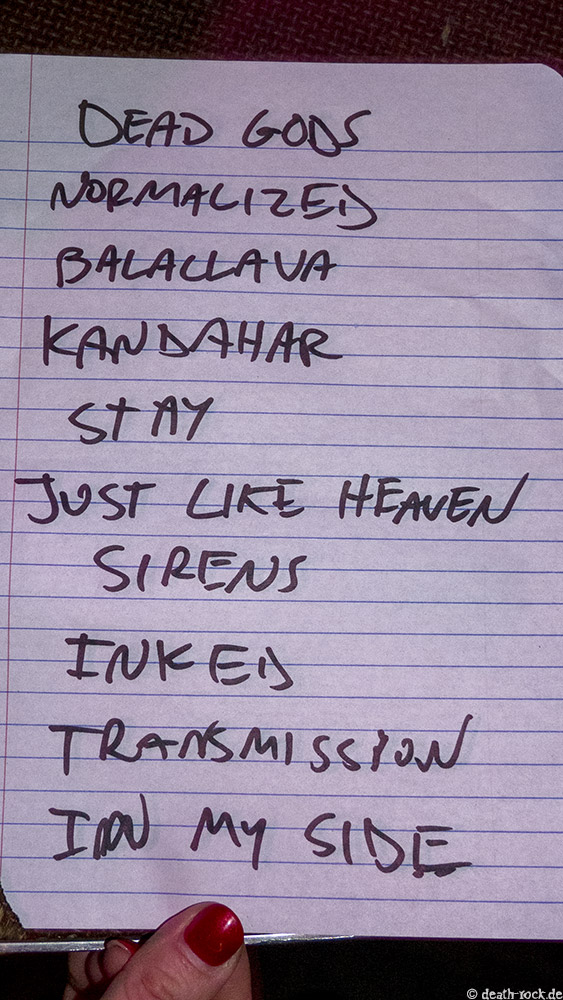 DEAD GODS
NORMALIZED
BALACLAVA
KANDAHAR
STAY
JUST LIKE HEAVEN
SIRENS
INKED
TRANSMISSION
IN MY SIDE
© death-rock.de